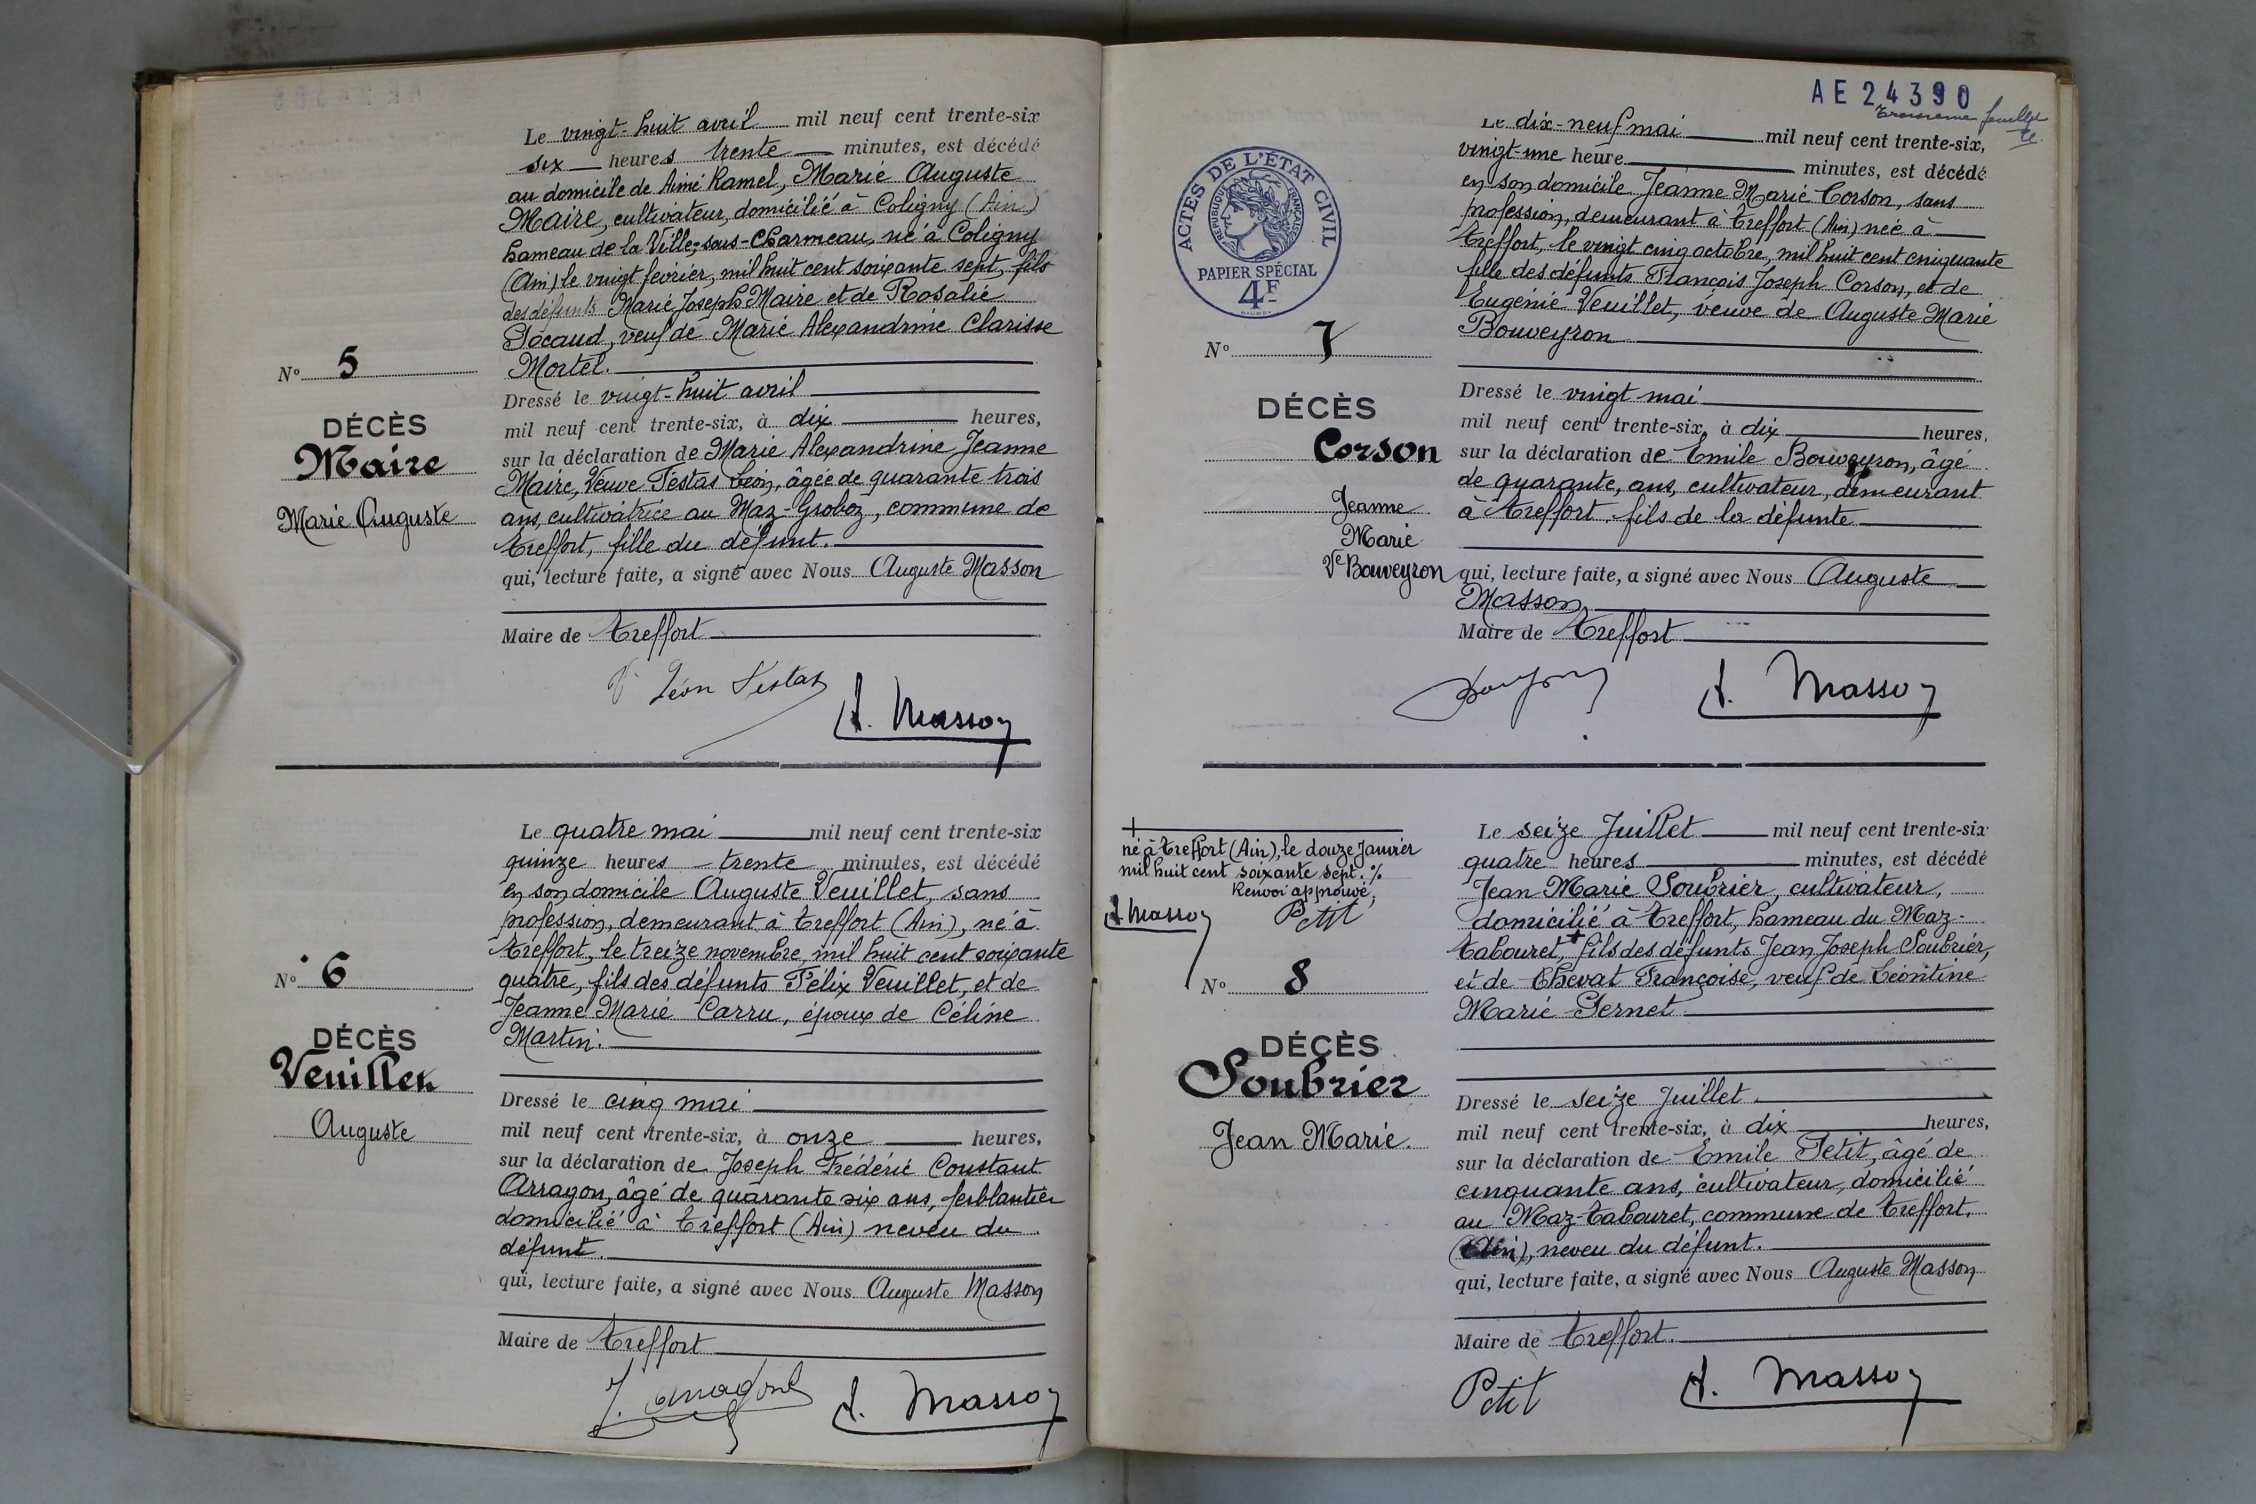 Le vingt-huit avril mil neuf cent trente-six
six heures trente minutes, est décédé
au domicile de Aimé Ramel, Marie Auguste
Maire, cultivateur, domicilié à Coligny (Ain)
hameau de la Ville-sous-Charmeau, né à Coligny
(Ain) le vingt février, mil huit cent soixante sept, fils
des défunts Marie Joseph Maire et de Rosalie
Pocaud, veuf de Marie Alexandrine Clarisse
Mortel.
Nº 5
DÉCÈS
Maire
Marie Auguste
Dressé le vingt-huit avril
mil neuf cent trente-six, à dix heures,
sur la déclaration de Marie Alexandrine Jeanne
Maire, Veuve Testas Léon, âgée de quarante trois
ans, cultivatrice au Maz-Groboz, commune de
Treffort, fille du défunt.
qui, lecture faite, a signé avec Nous Auguste Masson
Maire de Treffort
Vve Léon Testas
A. Masson
Le quatre mai mil neuf cent trente-six
quinze heures trente minutes, est décédé
en son domicile Auguste Veuillet, sans
profession, demeurant à Treffort (Ain), né à
Treffort, le treize novembre, mil huit cent soixante
quatre, fils des défunts Félix Veuillet, et de
Jeanne Marie Carru, époux de Céline
Martin.
Nº 6
DÉCÈS
Veuillet
Auguste
Dressé le cinq mai
mil neuf cent trente-six, à onze heures,
sur la déclaration de Joseph Frédéric Constant
Arragon, âgé de quarante six ans, ferblantier
domicilié à Treffort (Ain) neveu du
défunt.
qui, lecture faite, a signé avec Nous Auguste Masson
Maire de Treffort
J. Arragon
A. Masson
AE 24390
Troisième feuillet
ACTES DE L'ÉTAT CIVIL
RÉPUBLIQUE FRANÇAISE
PAPIER SPÉCIAL
4F
Le dix-neuf mai mil neuf cent trente-six,
vingt-une heure minutes, est décédé
en son domicile Jeanne Marie Corson, sans
profession, demeurant à Treffort (Ain) née à
Treffort, le vingt cinq octobre, mil huit cent cinquante
fille des défunts François Joseph Corson, et de
Eugénie Veuillet, veuve de Auguste Marie
Bouveyron
Nº 7
DÉCÈS
Corson
Jeanne
Marie
Ve Bouveyron
Dressé le vingt mai
mil neuf cent trente-six, à dix heures,
sur la déclaration de Emile Bouveyron, âgé
de quarante, ans, cultivateur, demeurant
à Treffort. fils de la défunte
qui, lecture faite, a signé avec Nous Auguste
Masson
Maire de Treffort
A. Masson
Le seize Juillet mil neuf cent trente-six
quatre heures minutes, est décédé
Jean Marie Soubrier, cultivateur,
domicilié à Treffort, hameau du Maz-
Tabouret, + fils des défunts Jean Joseph Soubrier,
et de Chevat Françoise, veuf de Léontine
Marie Pernet
+
né à Treffort (Ain), le douze Janvier
mil huit cent soixante sept. %
Renvoi approuvé,
A. Masson
Petit
Nº 8
DÉCÈS
Soubrier
Jean Marie.
Dressé le seize Juillet
mil neuf cent trente-six, à dix heures,
sur la déclaration de Emile Petit, âgé de
cinquante ans, cultivateur, domicilié
au Maz-Tabouret, commune de Treffort.
(Ain), neveu du défunt.
qui, lecture faite, a signé avec Nous Auguste Masson
Maire de Treffort.
Petit
A. Masson